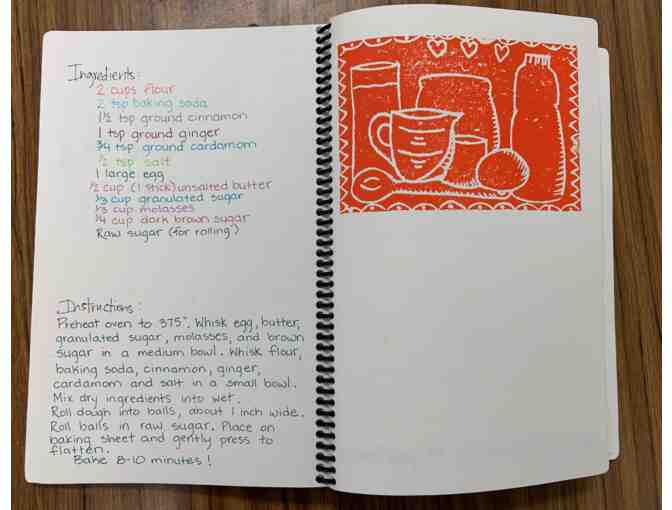 Ingredients:
2 cups flour
2 tsp baking soda
1½ tsp ground cinnamon
1 tsp ground ginger
¾ tsp ground cardamom
½ tsp salt
1 large egg
½ cup (1 stick) unsalted butter
⅓ cup granulated sugar
⅓ cup molasses
¼ cup dark brown sugar
Raw sugar (for rolling)
Instructions:
Preheat oven to 375°. Whisk egg, butter,
granulated sugar, molasses, and brown
sugar in a medium bowl. Whisk flour,
baking soda, cinnamon, ginger,
cardamom and salt in a small bowl.
Mix dry ingredients into wet.
Roll dough into balls, about 1 inch wide.
Roll balls in raw sugar. Place on
baking sheet and gently press to
flatten.
Bake 8-10 minutes!